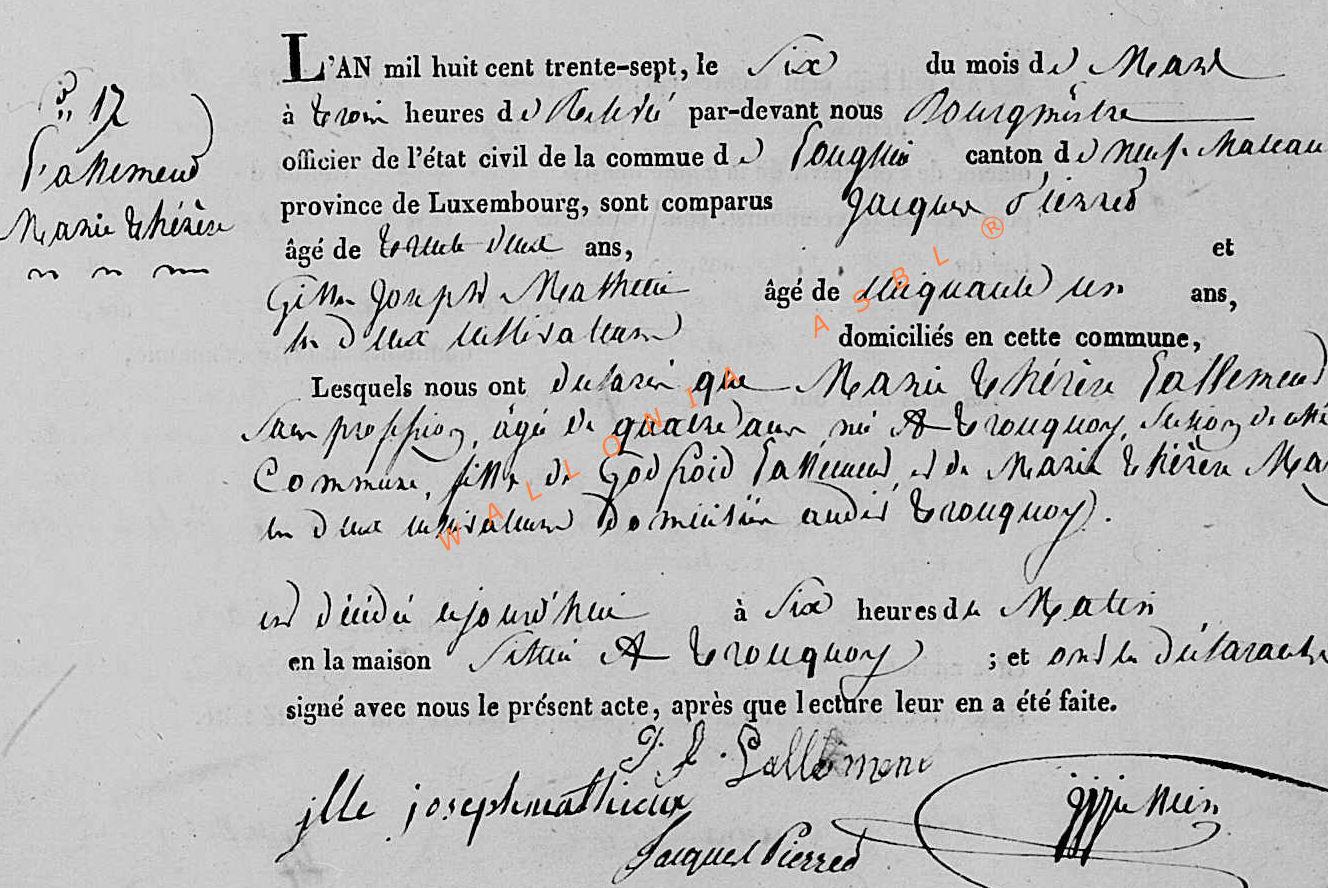 L'AN mil huit cent trente-sept, le six du mois de Mars
à trois heures de Relevée par-devant nous Bourgmestre
officier de l'état civil de la commue de Longlier canton de Neufchateau
province de Luxembourg, sont comparus Jacques Pierred
âgé de trente deux ans, et
Gille Joseph Mathieu âgé de cinquante un ans,
les deux cultivateurs domiciliés en cette commune,
Lesquels nous ont declaré que Marie Thérèse Lallemend
sans profession, âgée de quatre ans, née A Tronquoy, section de cette
Commune, fille de Godfroid Lallemend, et de Marie Thérèse Ma
les deux cultivateurs domiciliés audit Tronquoy.
est décédée cejourd'hui à six heures du Matin
en la maison A Tronquoy ; et ont les déclarants
signé avec nous le présent acte, après que lecture leur en a été faite.
n° 17
Lallemend
Marie Thérèse
Lallemend
jlle joseph mathieux
Jacques Pierred
WALLONIA ASBL ®